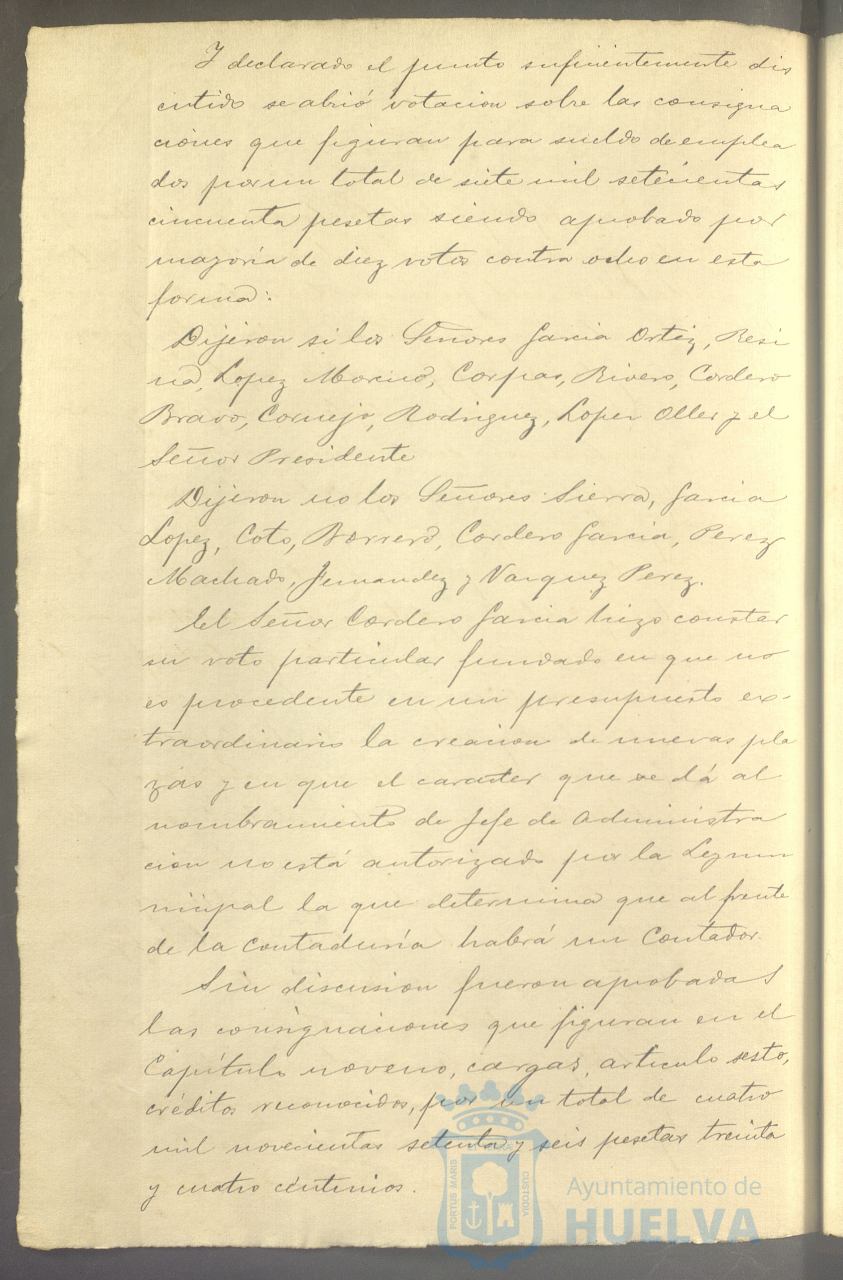 Y declarado el punto suficientemente dis
cutido se abrió votacion sobre las consigna
ciones que figuran para sueldo de emplea
dos por un total de siete mil setecientas
cincuenta pesetas siendo aprobado por
mayoría de diez votos contra ocho en esta
forma:
Dijeron si los Señores Garcia Ortiz, Resi
na, Lopez Moreno, Corpas, Rivero, Cordero
Bravo, Cornejo, Rodriguez, Lopez Oller y el
Señor Presidente
Dijeron no los Señores Sierra, Garcia
Lopez, Coto, Borrero, Cordero Garcia, Perez
Machado, Fernandez y Vazquez Perez.
El Señor Cordero Garcia hizo constar
su voto particular fundado en que no
es procedente en un presupuesto ex-
traordinario la creacion de nuevas pla
zas y en que el caracter que se dá al
nombramiento de Jefe de Administra
cion no está autorizado por la Ley mu
nicipal la que determina que al frente
de la Contaduría habrá un Contador.
Sin discusion fueron aprobadas
las consignaciones que figuran en el
Capítulo noveno, cargas, artículo sesto,
créditos reconocidos, por un total de cuatro
mil novecientas setenta y seis pesetas treinta
y cuatro centimos.
PORTUS MARIS
CUSTODIA
Ayuntamiento de
HUELVA